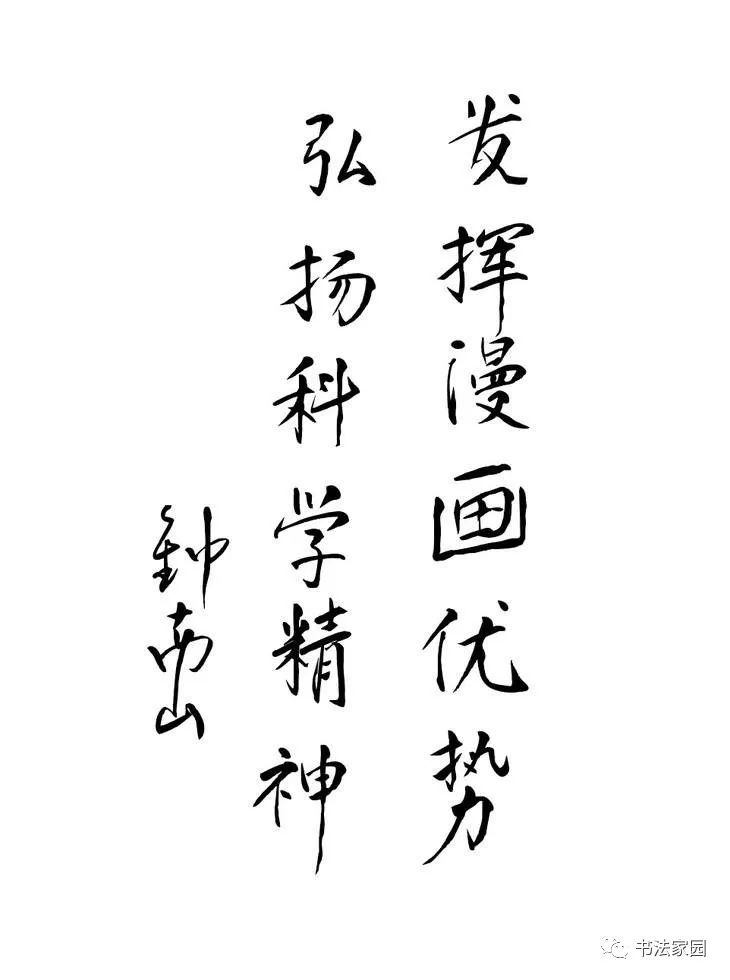 发挥漫画优势
弘扬科学精神
钟南山
书法家园